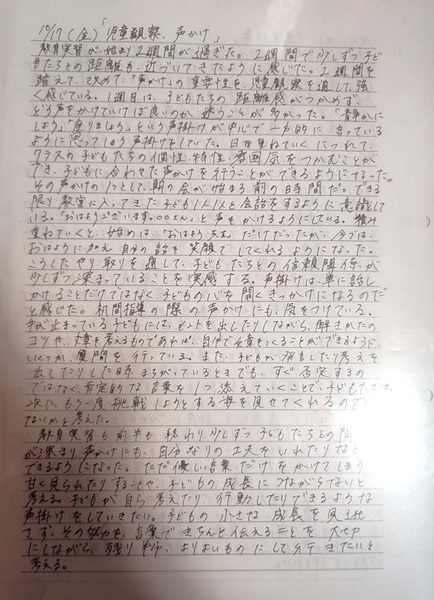 10/17(金)「児童観察、声かけ」
教育実習が始まり2週間が過ぎた。2週間で少しずつ子ど
もたちとの距離も近づいてきたように感じた。2週間を
踏えて、改めて「声かけ」の重要性を児童観察を通して強
く感じている。1週目は、子どもたちの距離感がつかめず、
どう声をかけていけば良いのか、迷うことが多かった。「静かに
しよう」「座りましょう」という声掛けが中心で一方的に言っている
ように思ってしまう声掛けをしていた。日を重ねていくにつれて、
クラスの子どもたちの個性、特性、雰囲気をつかむことが
でき、子どもに合わせた声かけを行うことができるようになった。
その声かけの1つとして、朝の会が始まる前の時間だ。できる
限り教室に入ってきた子ども1人1人と会話をするように意識して
いる。「おはようございます。○○さん」と声をかけるようにしている。積み
重ねていくと、始めは、「おはよう」だけだったが、今では、
おはように加え自分の話を笑顔でしてくれるようになった。
こうしたやり取りを通して、子どもたちとの信頼関係が
少しずつ深まっていることを実感する。声掛けは、単に話し
かけることだけではなく、子どもの心を開くきっかけになるのだ
と感じた。机間指導の際の声かけにも、気をつけている。
手が止まっている子どもには、ヒントを出したりしながら、解きかたの
コツや、文章を考えるものであれば、自分で文章をつくることができるように、
いくつか質問を行っている。また、子どもが発言したり考えを
出したりした時、まちがいているときでも、すぐ否定するの
ではなく、肯定的な言葉を1つ添えていくことで、子どもたちは、
次にもう一度挑戦しようとする姿を見せてくれるので
ないかと考えた。
教育実習も前半も終わり、少しずつ子どもたちとの
が深まり声かけにも、自分なりの工夫をいれたりなど
できるようになった。ただ優しい言葉だけをかけてしまう
甘く見られたりすることや、子どもの成長につながらないと
考える。子どもが自ら考えたり、行動したりできるような
声掛けをしていきたい。子どもの小さな成長を見逃
さず、その努力を、言葉できちんと伝えることを大切
にしながら、残り より良いものにして行きたいと
考える。